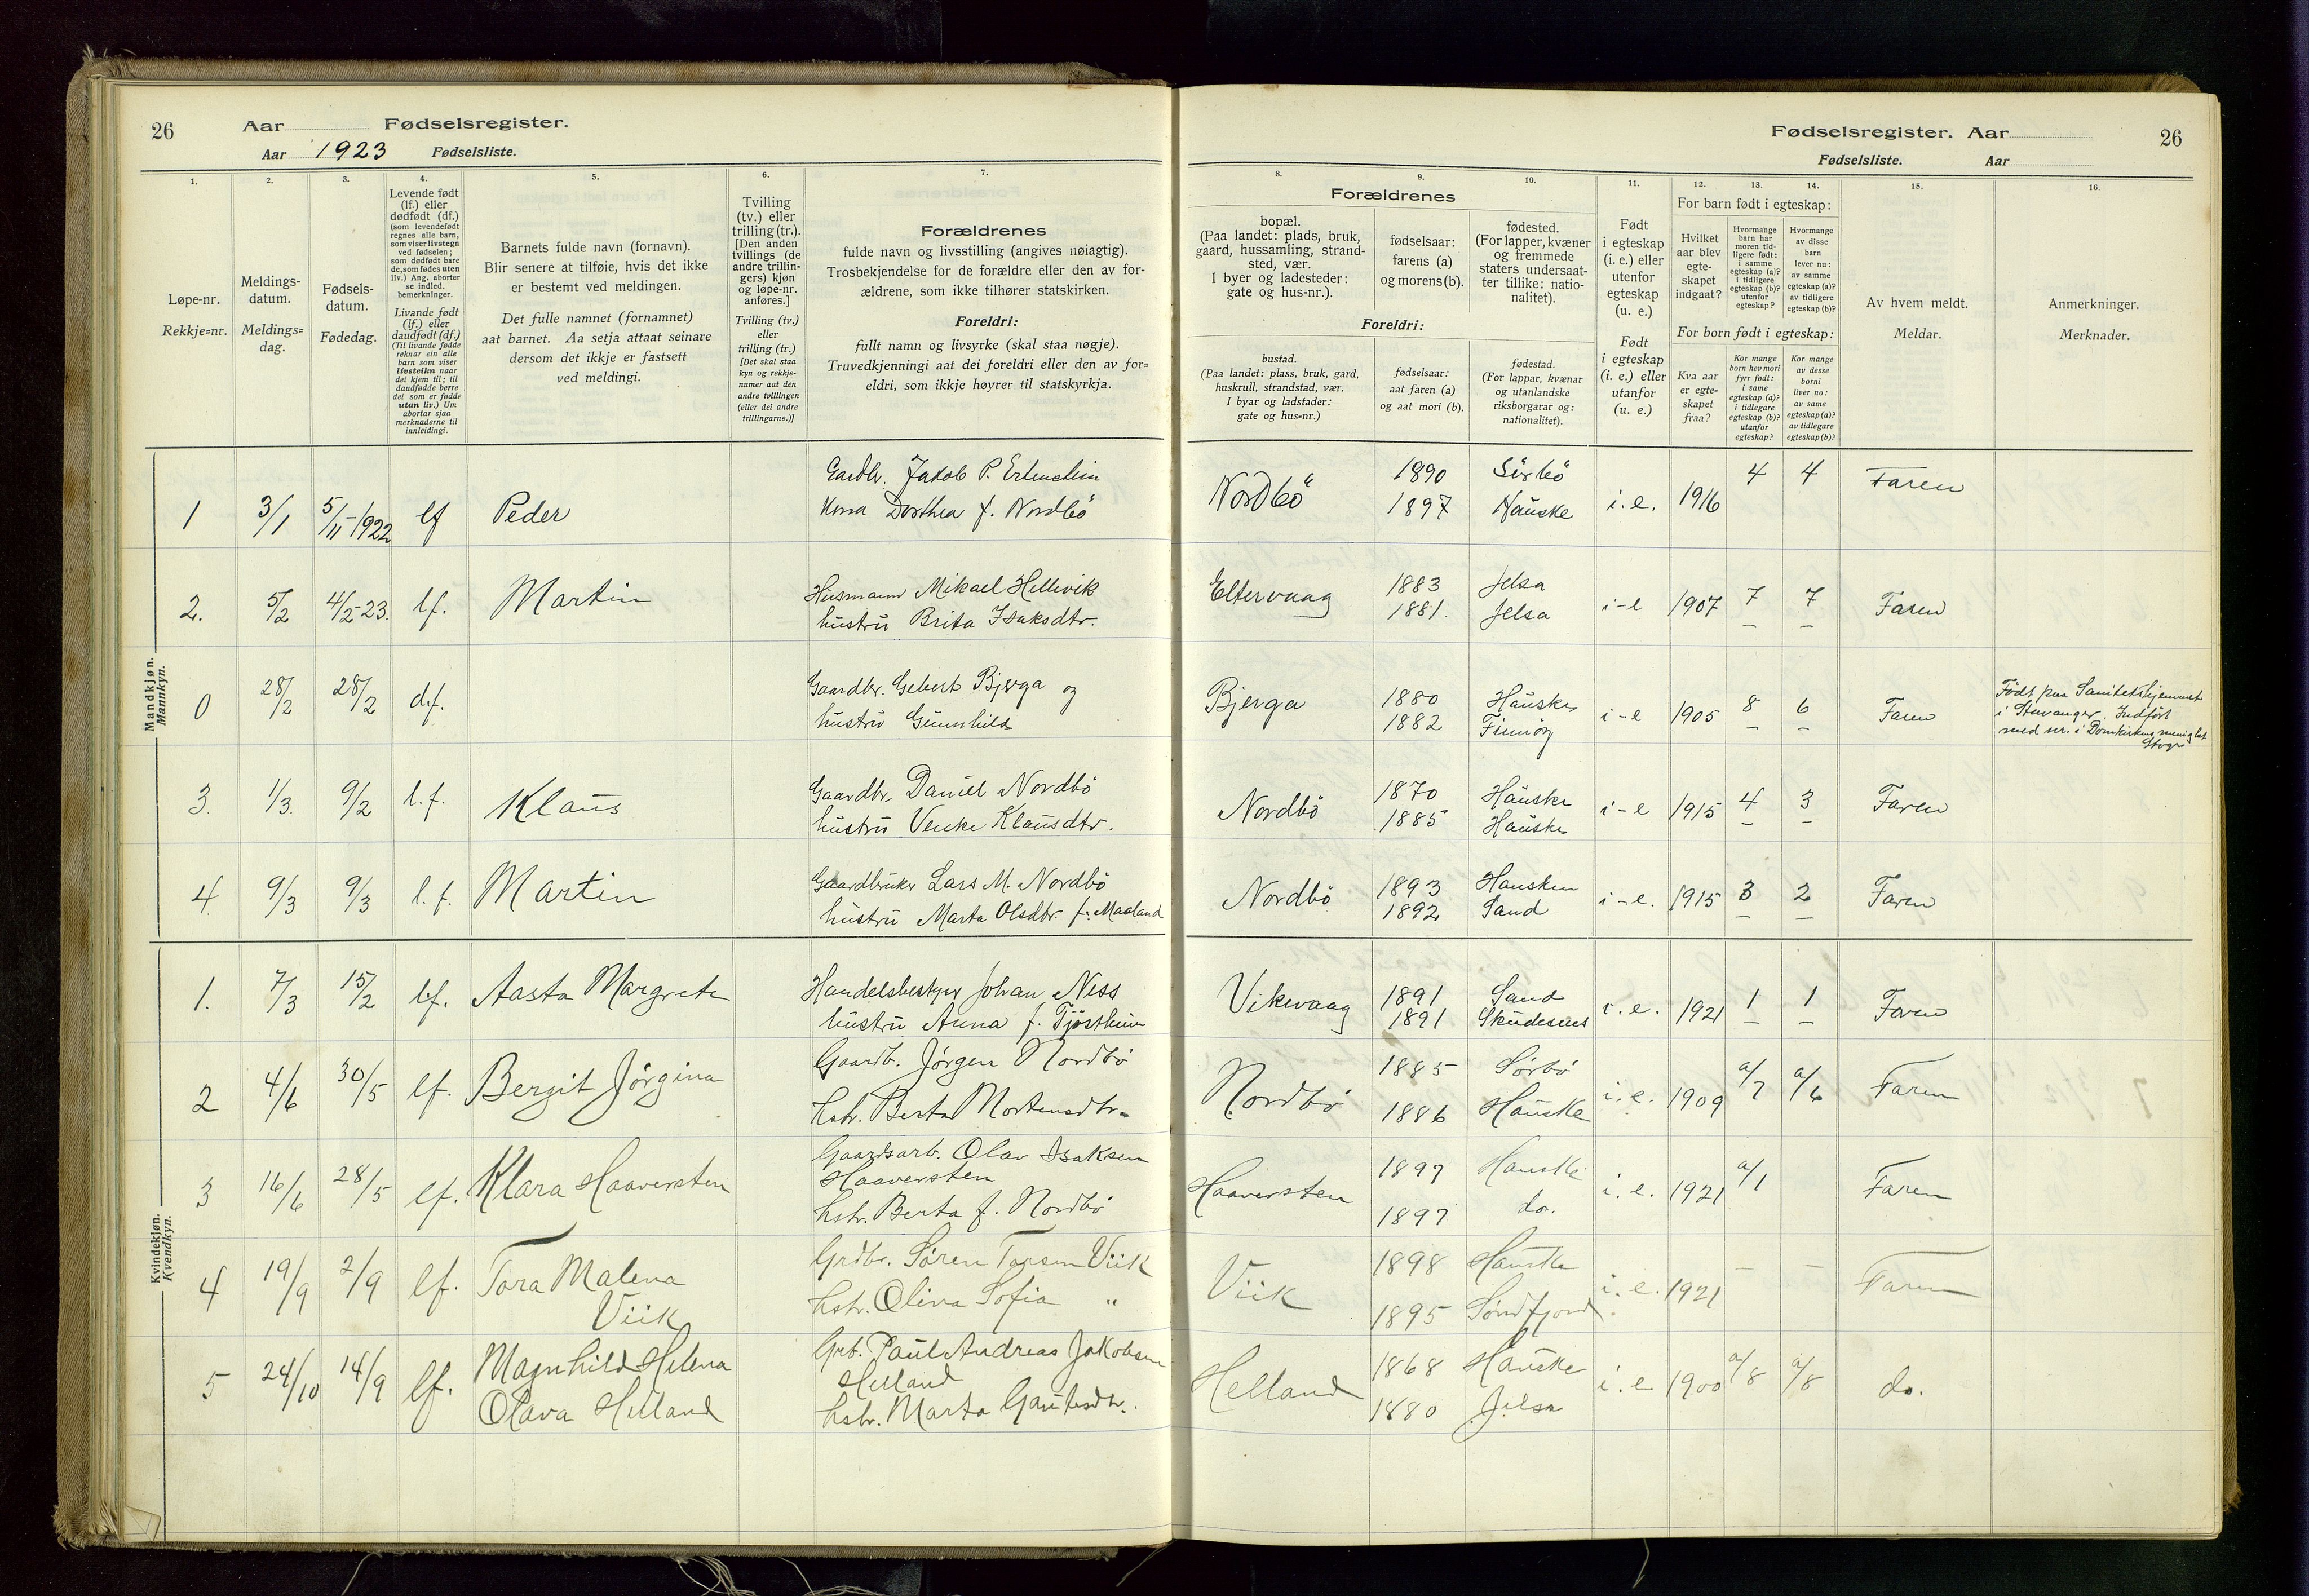 26 Aar Fødselsregister.
Aar 1923 Fødselsliste.
Fødselsregister. Aar 26
Fødselsliste. Aar
1. 2. 3. 4. 5. 6. 7.
Løpe-nr.
Rekkje=nr.
Meldings-
datum.
Meldings=
dag.
Fødsels-
datum.
Fødedag.
Levende født
(lf.) eller
dødfødt (df.)
(som levendefødt
regnes alle barn,
som viser livstegn
ved fødselen;
som dødfødt bare
de, som fødes uten
liv.) Ang. aborter
se indled.
bemerkninger.
Livande født
(lf.) eller
daudfødt (df.)
(Til livande fødde
reknar ein alle
barn som viser
livsteikn naar
dei kjem til; til
daudfødde berre
dei som er fødde
utan liv.) Um
abortar sjaa
merknaderne til
innleidingi.
Barnets fulde navn (fornavn).
Blir senere at tilføie, hvis det ikke
er bestemt ved meldingen.
Det fulle namnet (fornamnet)
aat barnet. Aa setja attaat seinare
dersom det ikkje er fastsett
ved meldingi.
Tvilling
(tv.) eller
trilling (tr.).
[Den anden
tvillings (de
andre trillin-
gers) kjøn
og løpe-nr.
anføres.]
Tvilling (tv.)
eller
trilling (tr.)
[Det skal staa
kyn og rekkje-
numer aat den
andre tvillingen
(eller dei andre
trillingarne.)]
Forældrenes
fulde navn og livsstilling (angives nøiagtig).
Trosbekjendelse for de forældre eller den av for-
ældrene, som ikke tilhører statskirken.
Foreldri:
fullt namn og livsyrke (skal staa nøgje).
Truvedkjenningi aat dei foreldri eller den av for=
eldri, som ikkje høyrer til statskyrkja.
8. 9. 10. 11. 12. 13. 14. 15. 16.
Forældrenes
bopæl.
(Paa landet: plads, bruk,
gaard, hussamling, strand-
sted, vær.
I byer og ladesteder:
gate og hus-nr.).
fødselsaar:
farens (a)
og morens (b).
fødested.
(For lapper, kvæner
og fremmede
staters undersaat-
ter tillike: natio-
nalitet).
Foreldri:
bustad.
(Paa landet: plass, bruk, gard,
huskrull, strandstad, vær.
I byar og ladstader:
gate og hus=nr.)
fødselsaar:
aat faren (a)
og aat mori (b).
fødestad.
(For lappar, kvænar
og utanlandske
riksborgarar og:
nationalitet).
Født
i egteskap
(i. e.) eller
utenfor
egteskap
(u. e.)
Født
i egteskap
(i. e.) eller
utanfor
(u. e.)
For barn født i egteskap:
Hvilket
aar blev
egte-
skapet
indgaat?
Hvormange
barn har
moren tid-
ligere født:
i samme
egteskap (a)?
i tidligere
egteskap (b)?
utenfor
egteskap?
Hvormange
av disse
barn
lever nu:
av samme
egteskap (a)?
av tidligere
egteskap (b)?
For born født i egteskap:
Kva aar
er egte-
skapet
fraa?
Kor mange
born hev mori
fyrr født:
i same
egteskap (a)?
i tidlegare
egteskap (b)?
utanfor
egteskap?
Kor mange
av desse
borni
liver no:
av same
egteskap (a)?
av tidlegare
egteskap (b)?
Av hvem meldt.
Meldar.
Anmerkninger.
Merknader.
Mandkjøn.
Mannkyn.
1 3/1 5/11-1922 lf Peder Jakob P. Kona Dorthea f. Nordbö Nordbö 1890 1897 Sörbö Hauske i.e. 1916 4 4 Faren
2. 5/2 4/2-23. lf. Martin Husmann Mikael Hellevik
hustru Brita Isaksdtr. Eltervaag 1883 1881. Jelsa Jelsa i-e 1907 7 7 Faren
0 28/2 28/2 d.f. Gaardbr. Gebert Bjerga og
hustru Gunnhild Bjerga 1880 1882 Hauske Finnöy i-e 1905 8 6 Faren
Födt paa Sanitetshjemmet
i Stavanger. Indfört
med nr. i Domkirkens menighet
Stvgr
3. 1/3. 9/2 l.f. Klaus Gaardbr. Daniel Nordbö
hustru Venke Klausdtr. Nordbö 1870 1885 Hauske Hauske i-e 1915 4 3 Faren
4. 9/3 9/3 l.f. Martin Gaardbruker Lars M. Nordbö
hustru Marta Olsdtr. f. Maaland Nordbö 1893 1892 Hausken Sand i-e. 1915 3 2 Faren
Kvindekjøn.
Kvendkyn.
1. 7/3 15/2 lf. Aasta Margrete Handelsbestyrer Johan Ness
hustru Anna f. Tjöstheim Vikevaag 1891 1891 Sand Skudesnes i.e. 1921 1 1 Faren
2 4/6 30/5 lf. Bergit Jörgina Gaardb. Jörgen Nordbö
hstr. Berta Mortensdtr. Nordbö 1885 1886 Sörbö Hauske i.e. 1909 a/7 a/6 Faren
3 16/6 28/5 lf. Klara Haaversten Gaardsarb. Olav Isaksen
Haaversten
hstr. Berta f. Nordbö Haaversten 1897 1897 Hauske do. i.e. 1921 a/1 Faren
4 19/9 2/9 lf. Tora Malena
Viik Grdbr. Sören Tarsen Viik
hstr. Oliva Sofia " Viik 1898 1895 Hauske Söndfjord i.e. 1921 - - Faren
5 24/10 14/9 lf. Magnhild Helena
Olava Helland Grb. Paul Andreas Jakobsen
Helland
hstr. Marta Gautesdtr. Helland 1868 1880 Hauske Jelsa i.e 1900 a/8 a/8 do.